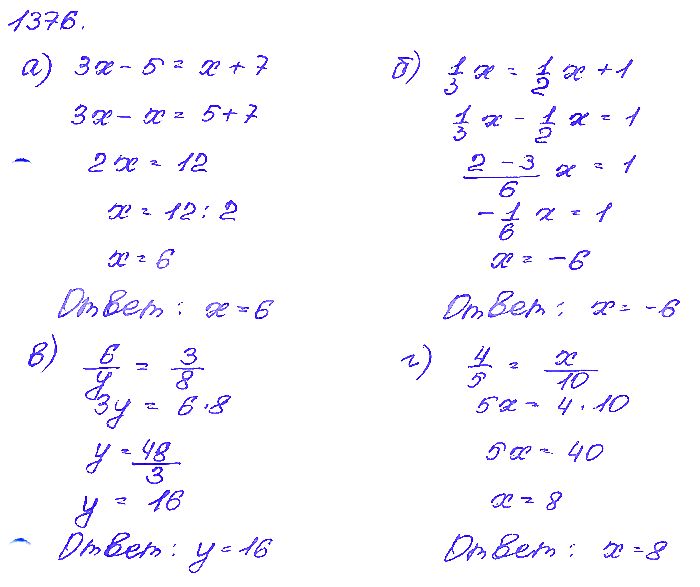 1376.
а) 3x - 5 = x + 7
3x - x = 5 + 7
2x = 12
x = 12 : 2
x = 6
Ответ: x = 6
б) 1/3 x = 1/2 x + 1
1/3 x - 1/2 x = 1
(2 - 3)/6 x = 1
-1/6 x = 1
x = -6
Ответ: x = -6
в) 6/y = 3/8
3y = 6 · 8
y = 48/3
y = 16
Ответ: y = 16
г) 4/5 = x/10
5x = 4 · 10
5x = 40
x = 8
Ответ: x = 8